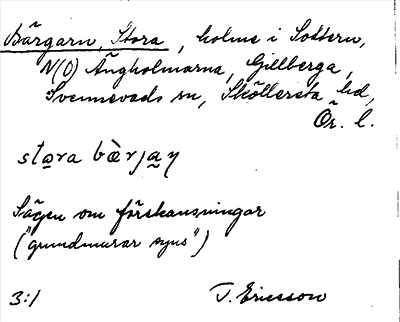 Bärgarn, Stora, holme i Sottern,
N(O) Ängholmarna, Gillberga,
Svennevads sn, Sköllersta hd,
Ör. l.
stara bàrjaŋ
Sägen om förskansningar
("grundmurar syns")
3:1 T. Ericsson